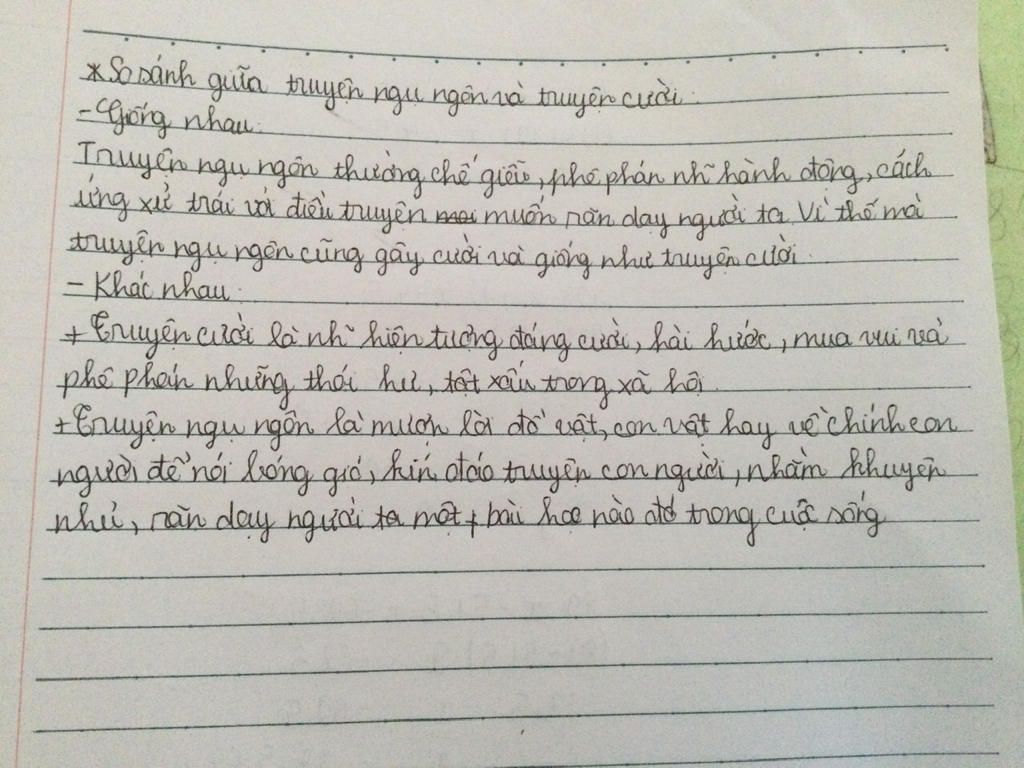 * So sánh giữa truyện ngụ ngôn và truyện cười.
- Giống nhau:
Truyện ngụ ngôn thường chế giễu, phê phán nh~ hành động, cách
ứng xử trái với điều truyện muốn răn dạy người ta. Vì thế mà
truyện ngụ ngôn cũng gây cười và giống như truyện cười.
- Khác nhau:
+ Truyện cười là nh~ hiện tượng đáng cười, hài hước, mua vui và
phê phán những thói hư, tật xấu trong xã hội.
+ Truyện ngụ ngôn là mượn lời đồ vật, con vật hay về chính con
người để nói bóng gió, kín đáo truyện con người, nhằm khuyên
nhủ, răn dạy người ta một bài học nào đó trong cuộc sống